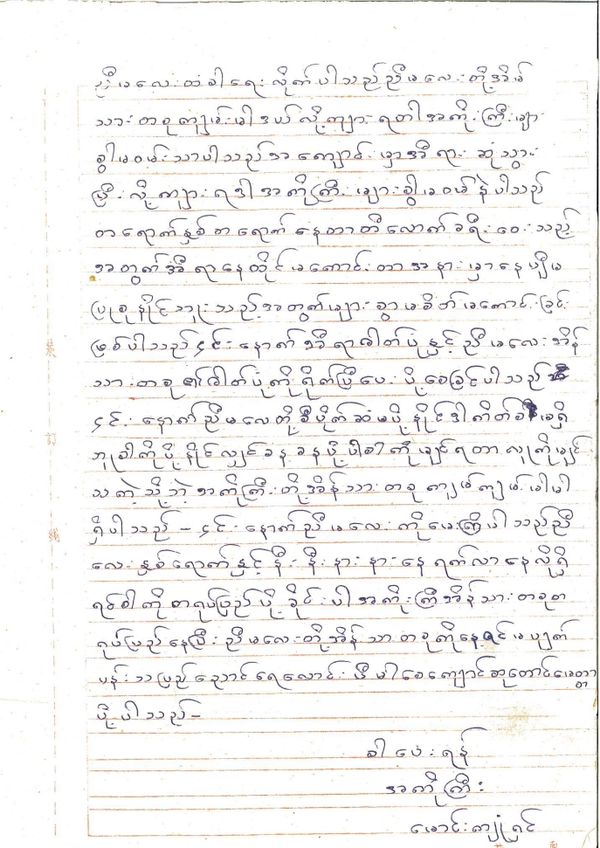 ညီမလေးထံခါရေးလိုက်ပါသည်ညီမလေးတို့အိမ်
သားတစုကျမ်းမါဒယ်လို့ကျားရတါအကိုးကြီးများ
စွါမဝမ်းသာပါသည်အကျောင်းမှာအီရားဆုံသွား
ပြီးလို့ကျားရဒါအကိုကြီးများစွါမဝမ်နဲပါသည်
တရောက်နှစ်တရောက်နေတာတီလောက်ခရီးဝေးသည့်
အတွက်အီရာနေထိုင်မကောင်းတာအနားမှာနေပျီမ
ပြုစုနိူင်ဘူးသည့်အတွက်များစွာမစိတ်မကောင်းခြင်း
ဖြစ်ပါသည်၎င်းနောက်အီရာဓါတ်ပုံနှင့်ညီမလေးအိန်
သားတစု၏ဓါတ်ပုံကိုရိုက်ပြီပေးပို့စေခြင်ပါသည်
၎င်းနောက်ညီမလေတို့ဒီပိုက်ဆံမပို့နိူင်ဒါကိတ်စါမရှိ
ဘူးခါကိုပို့နိူင်လျှင်ခနခနပို့ပါခါကိုမျင်ရတာလူကိုမျင်
သကဲ့သို့ဘဲအကိုကြီးတို့အိန်သားတစုကျမ်ကျမ်းမါမါ
ရှိပါသည် – ၎င်းနောက်ညီမလေးကိုမေးကြီပါသည်ညီ
လေးနှစ်ရောက်နှင့်နီးနီးနားနားနေရက်လာနေလို့ရှိ
ရင်စါကိုတရုပ်ပြည်ပို့ခိုင်းပါအကိုးကြီအိန်သားတစုတ
ရုပ်ပြည်နေပြီးညီမလေးတို့အိန်သာတစုကိုနေ့စင်မပျက်
ပန်းသပြည်ညောင်ရေလောင်းဖီမါစေကျောင်ဆုတောင်မေတ္တာ
ပို့ပါသည် –
ခါပေးရန်
အကိုကြီး
မောင်းကျုံရှင်